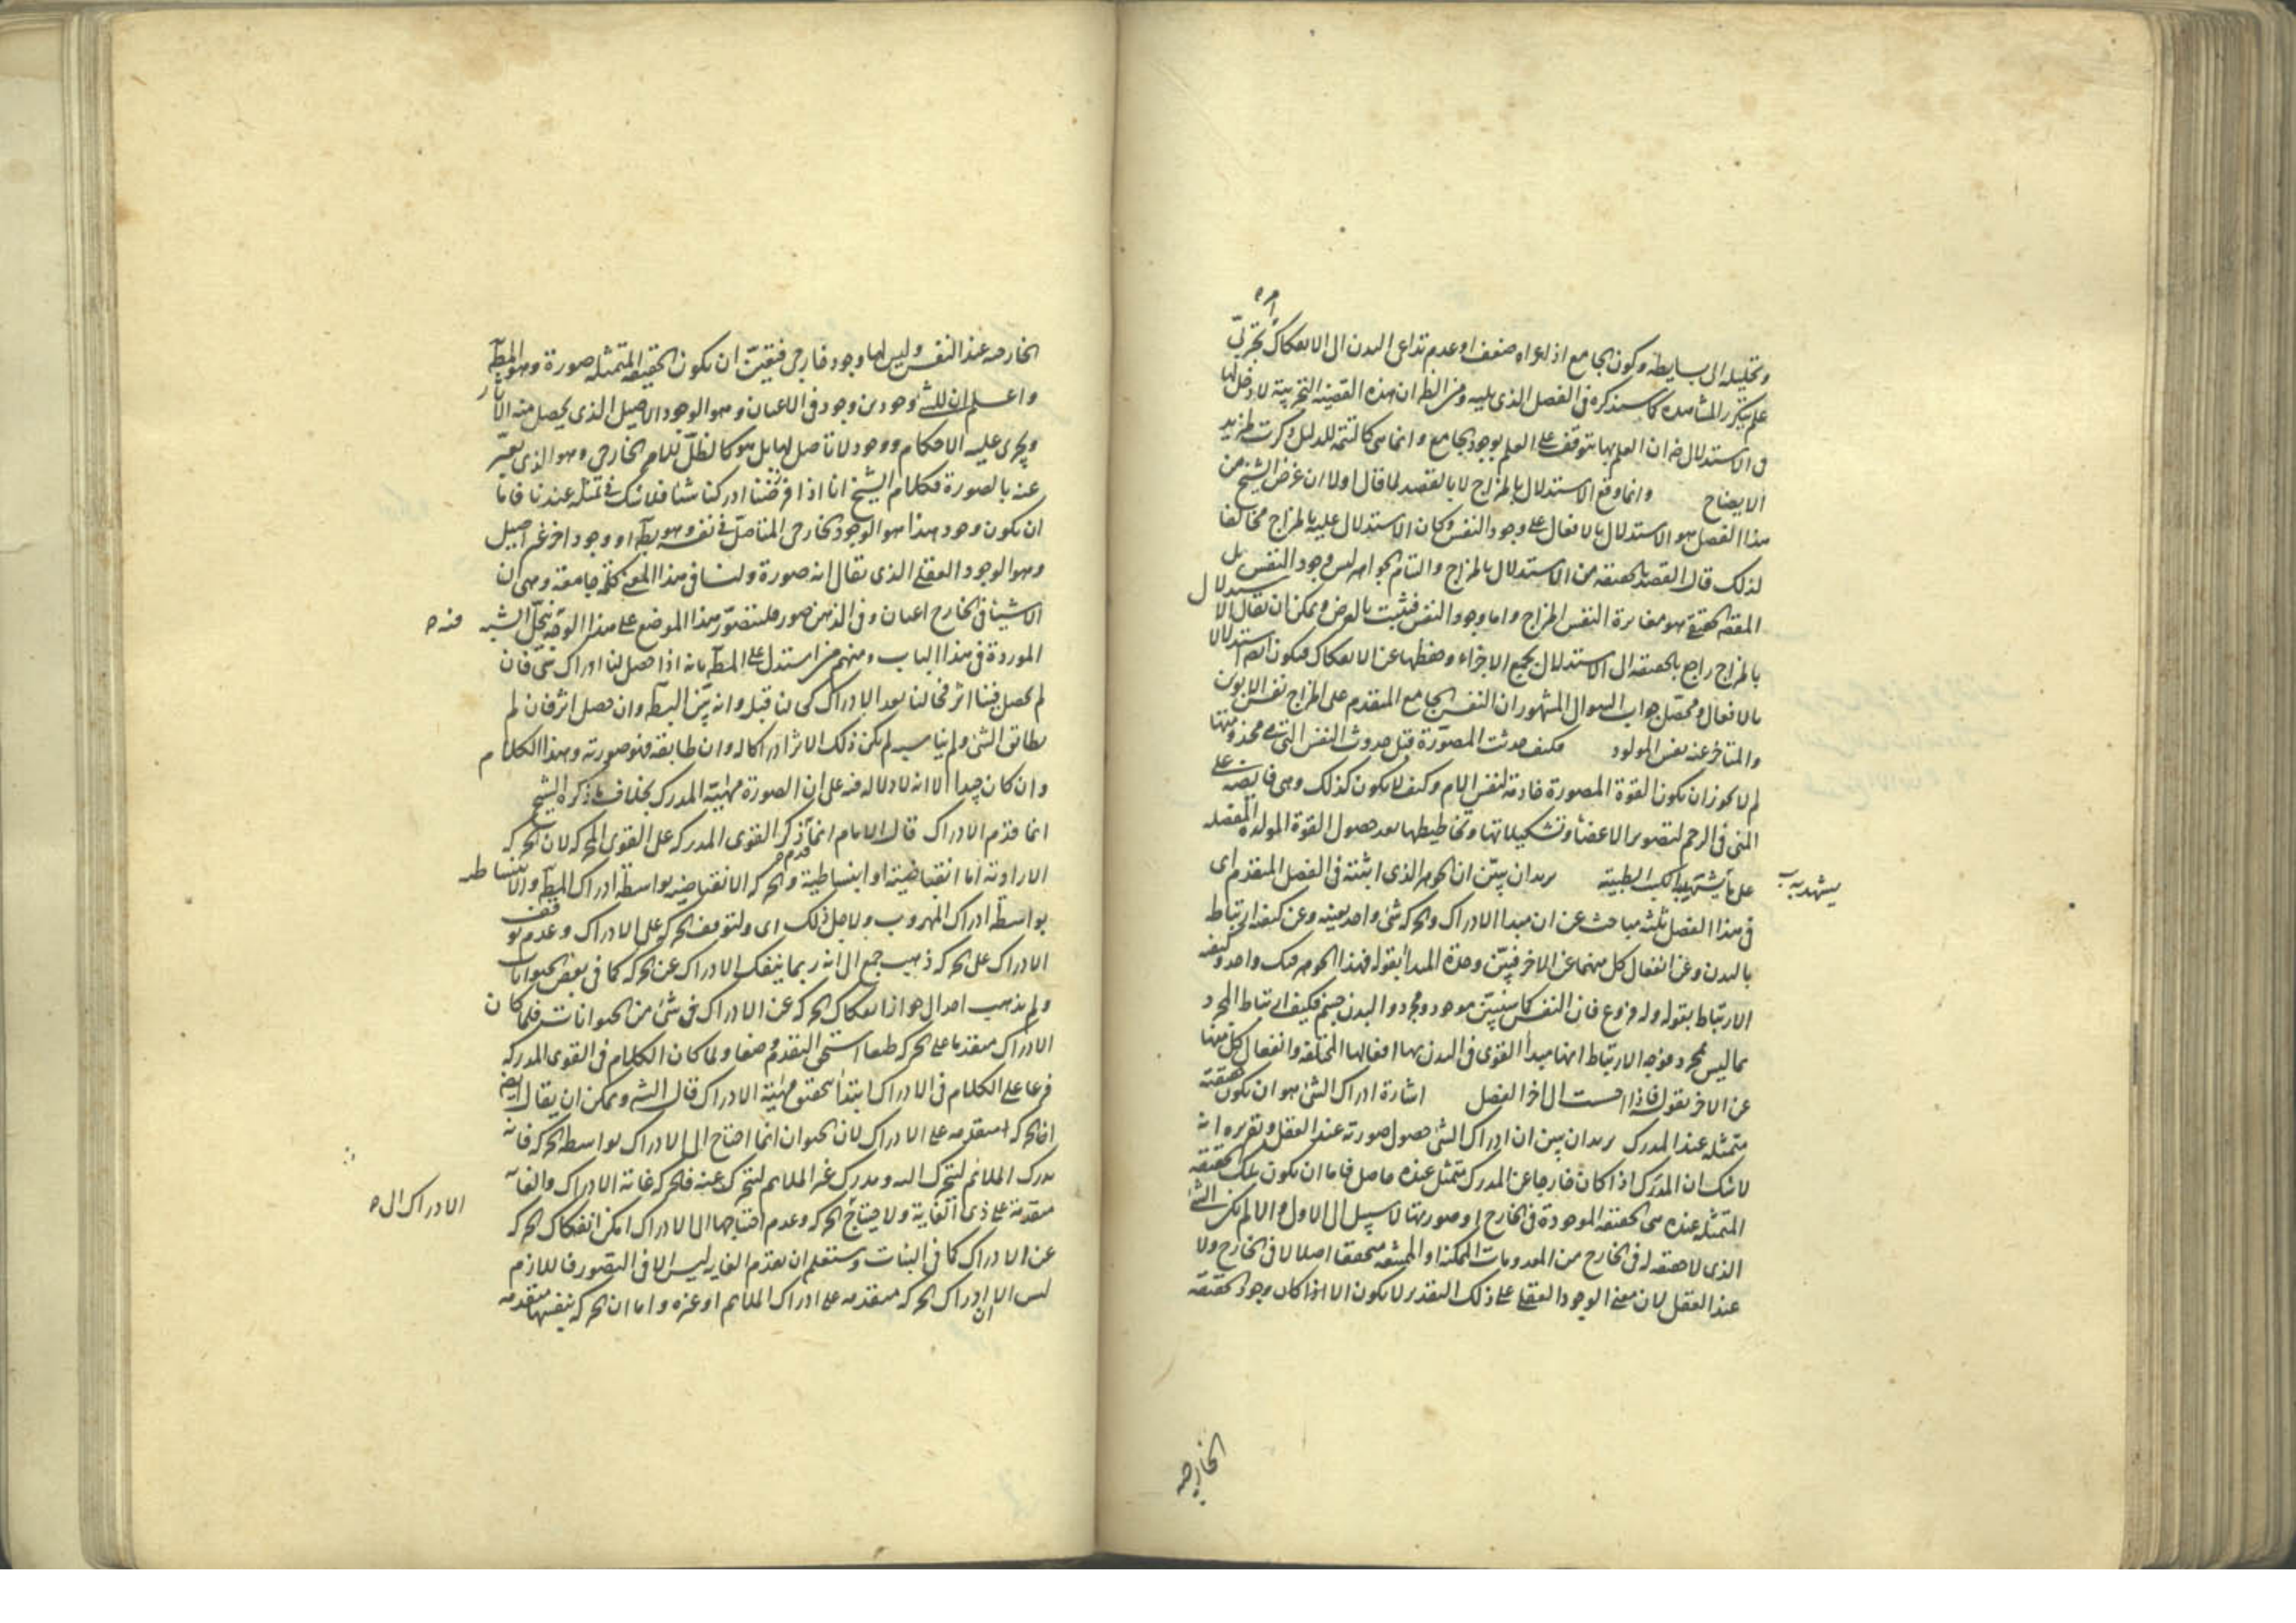 وتحليله الى بسايطه وكون الجامع اذا عراه ضعف او عدم تداعى البدن الى الانفكاك تجربىّ
علم بتكرر المشاهدة كما سيذكره فى الفصل الذى يليه ومن الظ ان هذه القضية التجربية لا دخل لها
فى الاستدلال ضه ان العلم بها يتوقف على العلم بوجود الجامع وانما هى كالتتمة للدليل ذكرت لمزيد
الايضاح وانما وقع الاستدلال بالمزاج لا بالقصد لما قال اولا ان غرض الشيخ من
هذا الفصل هو الاستدلال بالافعال على وجود النفس وكان الاستدلال عليه بالمزاج مخالفا
لذلك قال القصد بالحقيقة من الاستدلال بالمزاج والتيام الجواهر ليس وجود النفس بل
المقصد الحقيقى هو مغايرة النفس المزاج واما وجود النفس فيثبت بالعرض ويمكن ان يقال الاستدلال
بالمزاج راجع بالحقيقة الى الاستدلال بجمع الاجزاء وحفظها عن الانفكاك فيكون ايضا استدلالا
بالافعال ومحصّل جواب السوال المشهور ان النفس الجامع المتقدم على المزاج نفس الابوين
والمتاخر عنه نفس المولود فكيف حدثت المصورة قبل حدوث النفس التى هى مخدومتها
لم لا يجوز ان يكون القوة المصورة خادمة لنفس الام وكيف لا يكون كذلك وهى فايضة على
المنى فى الرحم لتصوير الاعضا وتشكيلاتها وتخاطيطها بعد حصول القوة المولدة المفصلة
على ما يشتهر به الكتب الطبية يريد ان يبيّن ان الجوهر الذى اثبته فى الفصل المتقدم اى
يشهد به
فى هذا الفصل ثلثة مباحث عن ان مبدا الادراك والحركة شى واحد بعينه وعن كيفية ارتباط
بالبدن وعن انفعال كل منهما عن الاخر فبيّن وحدة المبدأ بقوله فهذا الجوهر فيك واحد وكيفية
الارتباط بقوله وله فروع فان النفس كما سيتبيّن موجود مجرد والبدن جسم فكيف ارتباط المجرد
بما ليس بمجرد فوجه الارتباط انها مبدا القوى فى البدن بها افعالها المختلفة وانفعال كل منها
عن الاخر بقوله فاذا احست الى اخر الفصل اشارة ادراك الشى هو ان يكون حقيقته
متمثلة عند المدرك يريد ان يبين ان ادراك الشى حصول صورته عند العقل وتقريره انه
لا شك ان المدرَك اذا كان خارجا عن المدرك متمثل عنده حاصل فاما ان يكون تلك الحقيقة
المتمثلة عنده هى الحقيقة الموجودة فى الخارج او صورتها لا سبيل الى الاول والا لم يكن الشى
الذى لا حقيقة له فى الخارج من المعدومات الممكنة او الممتنعة متحققا اصلا لا فى الخارج ولا
عند العقل لان معنى الوجود العقلى على ذلك التقدير لا يكون الا اذا كان وجود الحقيقة
الخارجية
الخارجية عند النفس وليس لها وجود خارجى فيتعيّن ان يكون الحقيقة المتمثلة صورة وهو المط
واعلم ان للشى وجودين وجود فى الاعيان وهو الوجود الاصيل الذى يحصل منه الآثار
ويجرى عليه الاحكام ووجود لا تاصل لها بل هو كالظلّ للامر الخارجى وهو الذى يعبّر
عنه بالصورة فكلام الشيخ انا اذا فرضنا ادركنا شيا فلا شك فى تمثله عندنا فاما
ان يكون وجود هذا هو الوجود الخارجى المتاصّل فى نفسه وهو بط او وجود اخر غير اصيل
وهو الوجود العقلى الذى يقال انه صورة ولنا فى هذا المعنى كلمة جامعة وهى ان
الاشيا فى الخارج اعيان وفى الذهن صور فلنتصوّر هذا الموضع على هذا الوجه ينحلّ الشبه
منه
الموردة فى هذا الباب ومنهم من استدل على المط بانه اذا حصل لنا ادراك شى فان
لم يحصل فينا اثر فحالنا بعد الادراك كهى قبله وانه بيّن البطلان وان حصل اثر فان لم
يطابق الشى ولم يناسبه لم يكن ذلك الاثر ادراكا له وان طابقه فهو صورته وهذا الكلام
وان كان جيدا الا انه لا دلالة فيه على ان الصورة مهيّة المدرك بخلاف ما ذكره الشيخ
انما قدّم الادراك قال الامام انما ذكر القوى المدركة على القوى المحركة لان الحركة
قدم
الارادية اما انقباضية او انبساطية والحركة الانقباضية بواسطة ادراك المط والانبساطية
بواسطة ادراك المهروب ولاجل ذلك اى ولتوقف الحركة على الادراك وعدم توقف
الادراك على الحركة ذهب جمع الى انه ربما ينفك الادراك عن الحركة كما فى بعض الحيوانات
ولم يذهب احد الى جواز انفكاك الحركة عن الادراك فى شى من الحيوانات فلما كان
الادراك متقدما على الحركة طبعا استحق التقدم وضعا ولما كان الكلام فى القوى المدركة
فرعا على الكلام فى الادراك ابتدأ بتحقيق مهيّة الادراك قال الش ويمكن ان يقال ايض
ان الحركة متقدمة على الادراك لان الحيوان انما احتاج الى الادراك بواسطة الحركة فانه
يدرك الملائم ليتحرك اليه ويدرك غير الملايم ليتحرك عنه فالحركة غاية الادراك والغاية
متقدمة على ذى الغاية ولا حتياج الحركة وعدم احتياجها الى الادراك امكن انفكاك الحركة
الادراك الى
عن الادراك كما فى النبات وستعلم ان تقدم الغاية ليس الا فى التصور فاللازم
ليس الا ان ادراك الحركة متقدمة على ادراك الملايم او غيره واما ان الحركة بنفسها متقدمة